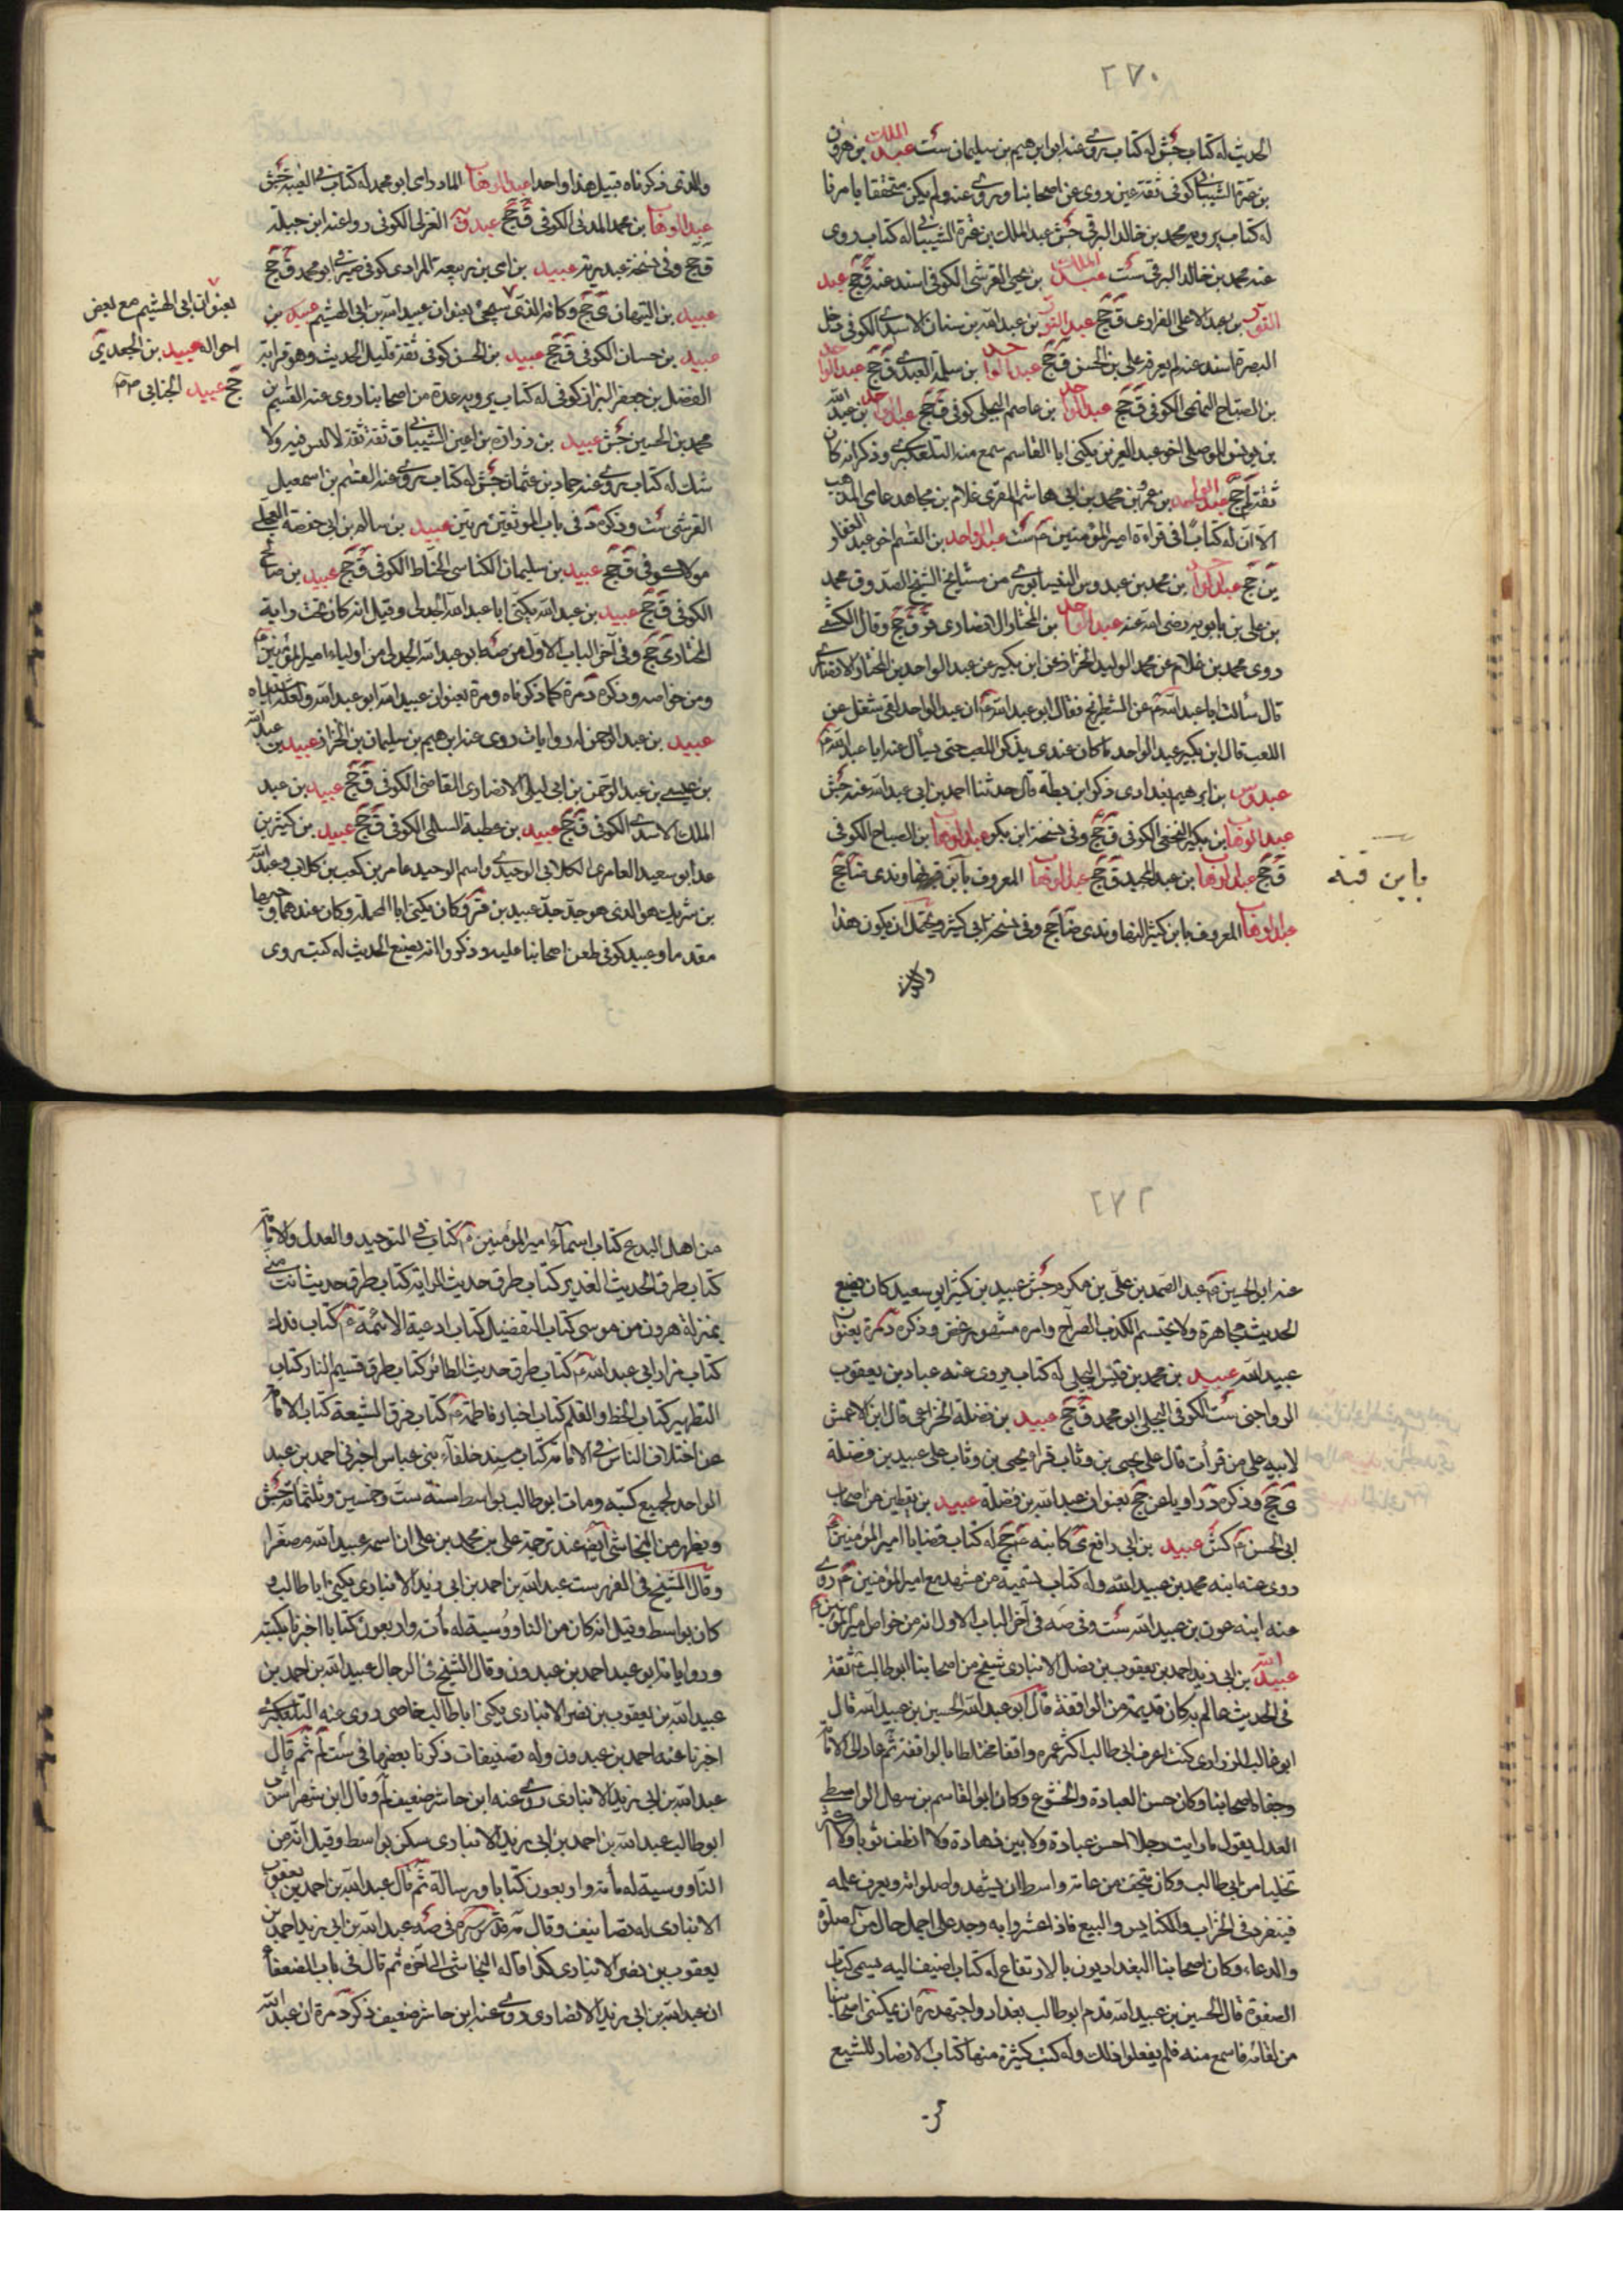 ٢٧٠
الحديث له كتاب جش له كتاب روى عنه ابراهيم بن سليمان ست عبد الملك بن هرون
بن عنترة الشيباني كوفي ثقة عين روى عن اصحابنا ورووا عنه ولم يكن متحققا بامرنا
له كتاب يرويه محمد بن خالد البرقي جش عبد الملك بن عنترة الشيباني له كتاب روى
عنه محمد بن خالد البرقي ست عبد الملك بن يحيى القرشي الكوفي اسند عنه ق جخ عبد
بن عبد الاعلى الفزاوي ق جخ عبد النور بن عبد الله بن سنان الاسدي الكوفي دخل
البصرة اسند عنه لم يعرفه علي بن الحسن ق جخ عبد الواحد بن سلمة العبدي ق جخ عبد الواحد
بن الصباح الكوفي ق جخ عبد الواحد بن عاصم البجلي كوفي ق جخ عبد الواحد بن عبد الله
بن يونس الموصلي اخو عبد العزيز يكنى ابا القاسم سمع منه التلعكبري وذكر انه كان
ثقة لم جخ عبد الواحد بن عمر بن محمد بن ابي هاشم المقرى غلام بن مجاهد عامي المذهب
الا ان له كتابا في قراءة امير المؤمنين م ست عبد الواحد بن القسم اخو عبد الغفار
ين جخ عبد الواحد بن محمد بن عبدوس النيسابوري من مشايخ الشيخ الصدوق محمد
بن علي بن بابويه رضي الله عنه عبد الواحد بن المختار الانصاري قر ق جخ وقال الكشي
روى محمد بن غلام عن محمد الوليد الخزاز عن ابن بكير عن عبد الواحد بن المختار الانصاري
قال سألت ابا عبد الله م عن الشطرنج فقال ابو عبد الله م ان عبد الواحد لفي شغل عن
اللعب قال ابن بكير عبد الواحد ما كان عندي يذكر اللعب حتى يسأل عنه ابا عبد الله م
عبدوس بن ابرهيم بغدادي ذكر ابن بطه قال حدثنا احمد بن ابي عبد الله عنه جش
عبد الوهاب بن بكير النخعي الكوفي ق جخ وفي نسخة ابن بكر عبد الوهاب بن الصباح الكوفي
ق جخ عبد الوهاب بن عبد المجيد ق جخ عبد الوهاب المعروف بابن قبة نهاوندي ضا جخ
عبد الوهاب المعروف بابن كثير النهاوندي ضا جخ وفي نسخة ابي كثير ويحتمل ان يكون هذا
بابن قبة
والذي ذكرناه قبيل هذا واحدا عبد الوهاب المادراي ابو محمد له كتاب في الغيبة جش
عبد الوهاب بن محمد المدني الكوفي ق جخ عبد الغزلي الكوفي روا عنه ابن جبلة
ق جخ وفي نسخة عبيد بن امي بن ربيعة المرادي كوفي ابو محمد ق جخ
عبيد بن التيهان ى جخ وكانه الذي سيجئ بعنوان عبيد الله بن ابي الهشيم عبيد بن
عبيد بن حسان الكوفي ق جخ عبيد بن الحسن كوفي ثقة قليل الحديث وهو قرابة
الفضل بن جعفر البزاز كوفي له كتاب يرويه عدة من اصحابنا روى عنه القسم بن
محمد بن الحسين جش عبيد بن زرارة بن اعين الشيباني ق ثقة ثقة لا لبس فيه ولا
شك له كتاب يروي عنه حماد بن عثمان جش له كتاب روى عنه القسم بن اسمعيل
القرشي ست وذكره د في باب الموثقين مرتين عبيد بن سالم بن ابي حفصة العجلي
مولاه كوفي ق جخ عبيد بن سليمان الكناسي الخياط الكوفي ق جخ عبيد بن صالح
الكوفي ق جخ عبيد بن عبد الله يكنى ابا عبد الله الجدلي وقيل انه كان تحت راية
المختار ى جخ وفي آخر الباب الاول من صه ابو عبد الله الجدلي من اولياء امير المؤمنين م
ومن خواصه وذكره د مرة كما ذكرناه ومرة بعنوان عبيد الله ابو عبد الله ولعله اشتباه
عبيد بن عبد الرحمن له روايات روى عنه ابرهيم بن سليمان بن الخزاز عبيد بن عبد الله
بن عيسى بن عبد الرحمن بن ابي ليلى الانصاري القاضي الكوفي ق جخ عبيد بن عبد
الملك الاسدي الكوفي ق جخ عبيد بن عطية السلمي الكوفي ق جخ عبيد بن كثير بن
عد ابو سعيد العامري الكلابي الوحيدي واسم الوحيد عامر بن كعب بن كلاب وعبد الله
بن شريك هو الذي هو جد جد عبيد بن وكان يكنى ابا المحجل وكان عندهما وجيها
مقدما وعبيد كوفي طعن اصحابنا عليه وذكروا انه يضع الحديث له كتب روى
بعنوان ابي الهشيم مع بعض
احواله عبيد بن الجعد ى
جخ عبيد الجنابي م م
٢٧٢
عنه ابو الحسين عبد الصمد بن علي بن مكرم جش عبيد بن كثير ابو سعيد كان يضع
الحديث مجاهرة ولا يحتشم الكذب الصراح وامره مشهور غض وذكره د مرة بعنوان
عبيد الله عبيد بن محمد بن قيس البجلي له كتاب يروى عنه عباد بن يعقوب
الرواجني ست الكوفي البجلي ابو محمد ق جخ عبيد بن نضلة الخزاعي قال ابن الاعمش
لابيه على من قرأت قال على يحيى بن وثاب وقرا يحيى بن وثاب على عبيد بن نضلة
ى جخ وذكره د راويا عن جخ بعنوان عبد الله بن نضلة عبيد بن يقطين من اصحاب
ابي الحسن م كش عبيد بن ابي رافع ى كاتبه جخ له كتاب قضايا امير المؤمنين م
روى عنه ابنه محمد بن عبيد الله وله كتاب تسمية من شهد مع امير المؤمنين م روى
عنه ابنه عون بن عبيد الله ست وفي صه في آخر الباب الاول انه من خواص امير المؤمنين م
عبيد الله بن ابي زيد احمد بن يعقوب بن نصر الانباري شيخ من اصحابنا ابو طالب ثقة
في الحديث عالم به كان قديما من الواقفة قال ابو عبد الله الحسين بن عبيد الله قال
ابو غالب الزراري كنت اعرف ابي طالب اكثر عمره واقفا مختلطا بالواقفة ثم عاد الى الامامة
وجفاه اصحابنا وكان حسن العبادة والخشوع وكان ابو القاسم بن سهل الواسطي
العدل يقول ما رايت رجلا احسن عبادة ولا ابين زهادة ولا انظف ثوبا ولا اكثر
تحليا من ابي طالب وكان يتخوف من عامة واسط ان يشهدوا صلواته ويعرف عمله
فينفرد في الخراب والكنايس والبيع فاذا عثروا به وجد على اجمل حال من الصلوة
والدعاء وكان اصحابنا البغداديون بالارتفاع له كتاب اضيف اليه يسمى كتاب
الصفوة قال الحسين بن عبيد الله قدم ابو طالب بغداد واجتهدت ان يمكنني اصحابنا
من لقائه فاسمع منه فلم يفعلوا ذلك وله كتب كثيرة منها كتاب الانتصار للشيع
من اهل البدع كتاب اسماء امير المؤمنين م كتاب في التوحيد والعدل والامامة
كتاب طرق الحديث الغدير كتاب طرق حديث الراية كتاب طرق حديث انت مني
بمنزلة هرون من موسى كتاب التفضيل كتاب ادعية الائمة م كتاب فدك
كتاب مزار ابي عبد الله م كتاب طرق حديث الطائر كتاب طرق قسيم النار كتاب
التطهير كتاب الخط والقلم كتاب اخبار فاطمة م كتاب فرق الشيعة كتاب الابانة
عن اختلاف الناس في الامامة كتاب مسند خلفآء بني عباس اخبرني احمد بن عبد
الواحد لجميع كتبه ومات ابو طالب بواسط سنة ست وخمسين وثلثمائة جش
ويظهر من النجاشي ايضا عند ترجمة علي بن محمد بن علي ان اسمه عبيد الله مصغرا
وقال الشيخ في الفهرست عبد الله بن احمد بن ابي زيد الانباري يكنى ابا طالب
كان بواسط وقيل انه كان من الناووسية له مأة واربعون كتابا اخبرنا بكتبه
ورواياته ابو عبد احمد بن عبدون وقال الشيخ في الرجال عبيد الله بن احمد بن
عبيد الله بن يعقوب بن نصر الانباري يكنى ابا طالب خاصي روى عنه التلعكبري
اخبرنا عنه احمد بن عبدون وله تصنيفات ذكرنا بعضها في ست لم ثم قال
عبد الله بن ابي زيد الانباري روى عنه ابن حاشر ضعيف لم وقال ابن شهراشوب
ابو طالب عبد الله بن احمد بن ابي زيد الانباري سكن بواسط وقيل انه من
الناووسية له مأة واربعون كتابا ورسالة ثم قال عبد الله بن احمد بن يعقوب
الانباري له تصانيف وقال في صه عبد الله بن ابي زيد احمد بن
يعقوب بن نصر الانباري كذا قاله النجاشي الى آخره ثم قال في باب الضعفاء
ان عبد الله بن ابي زيد الانصاري روى عنه ابن حاشر ضعيف ذكر د مرة ان عبد الله